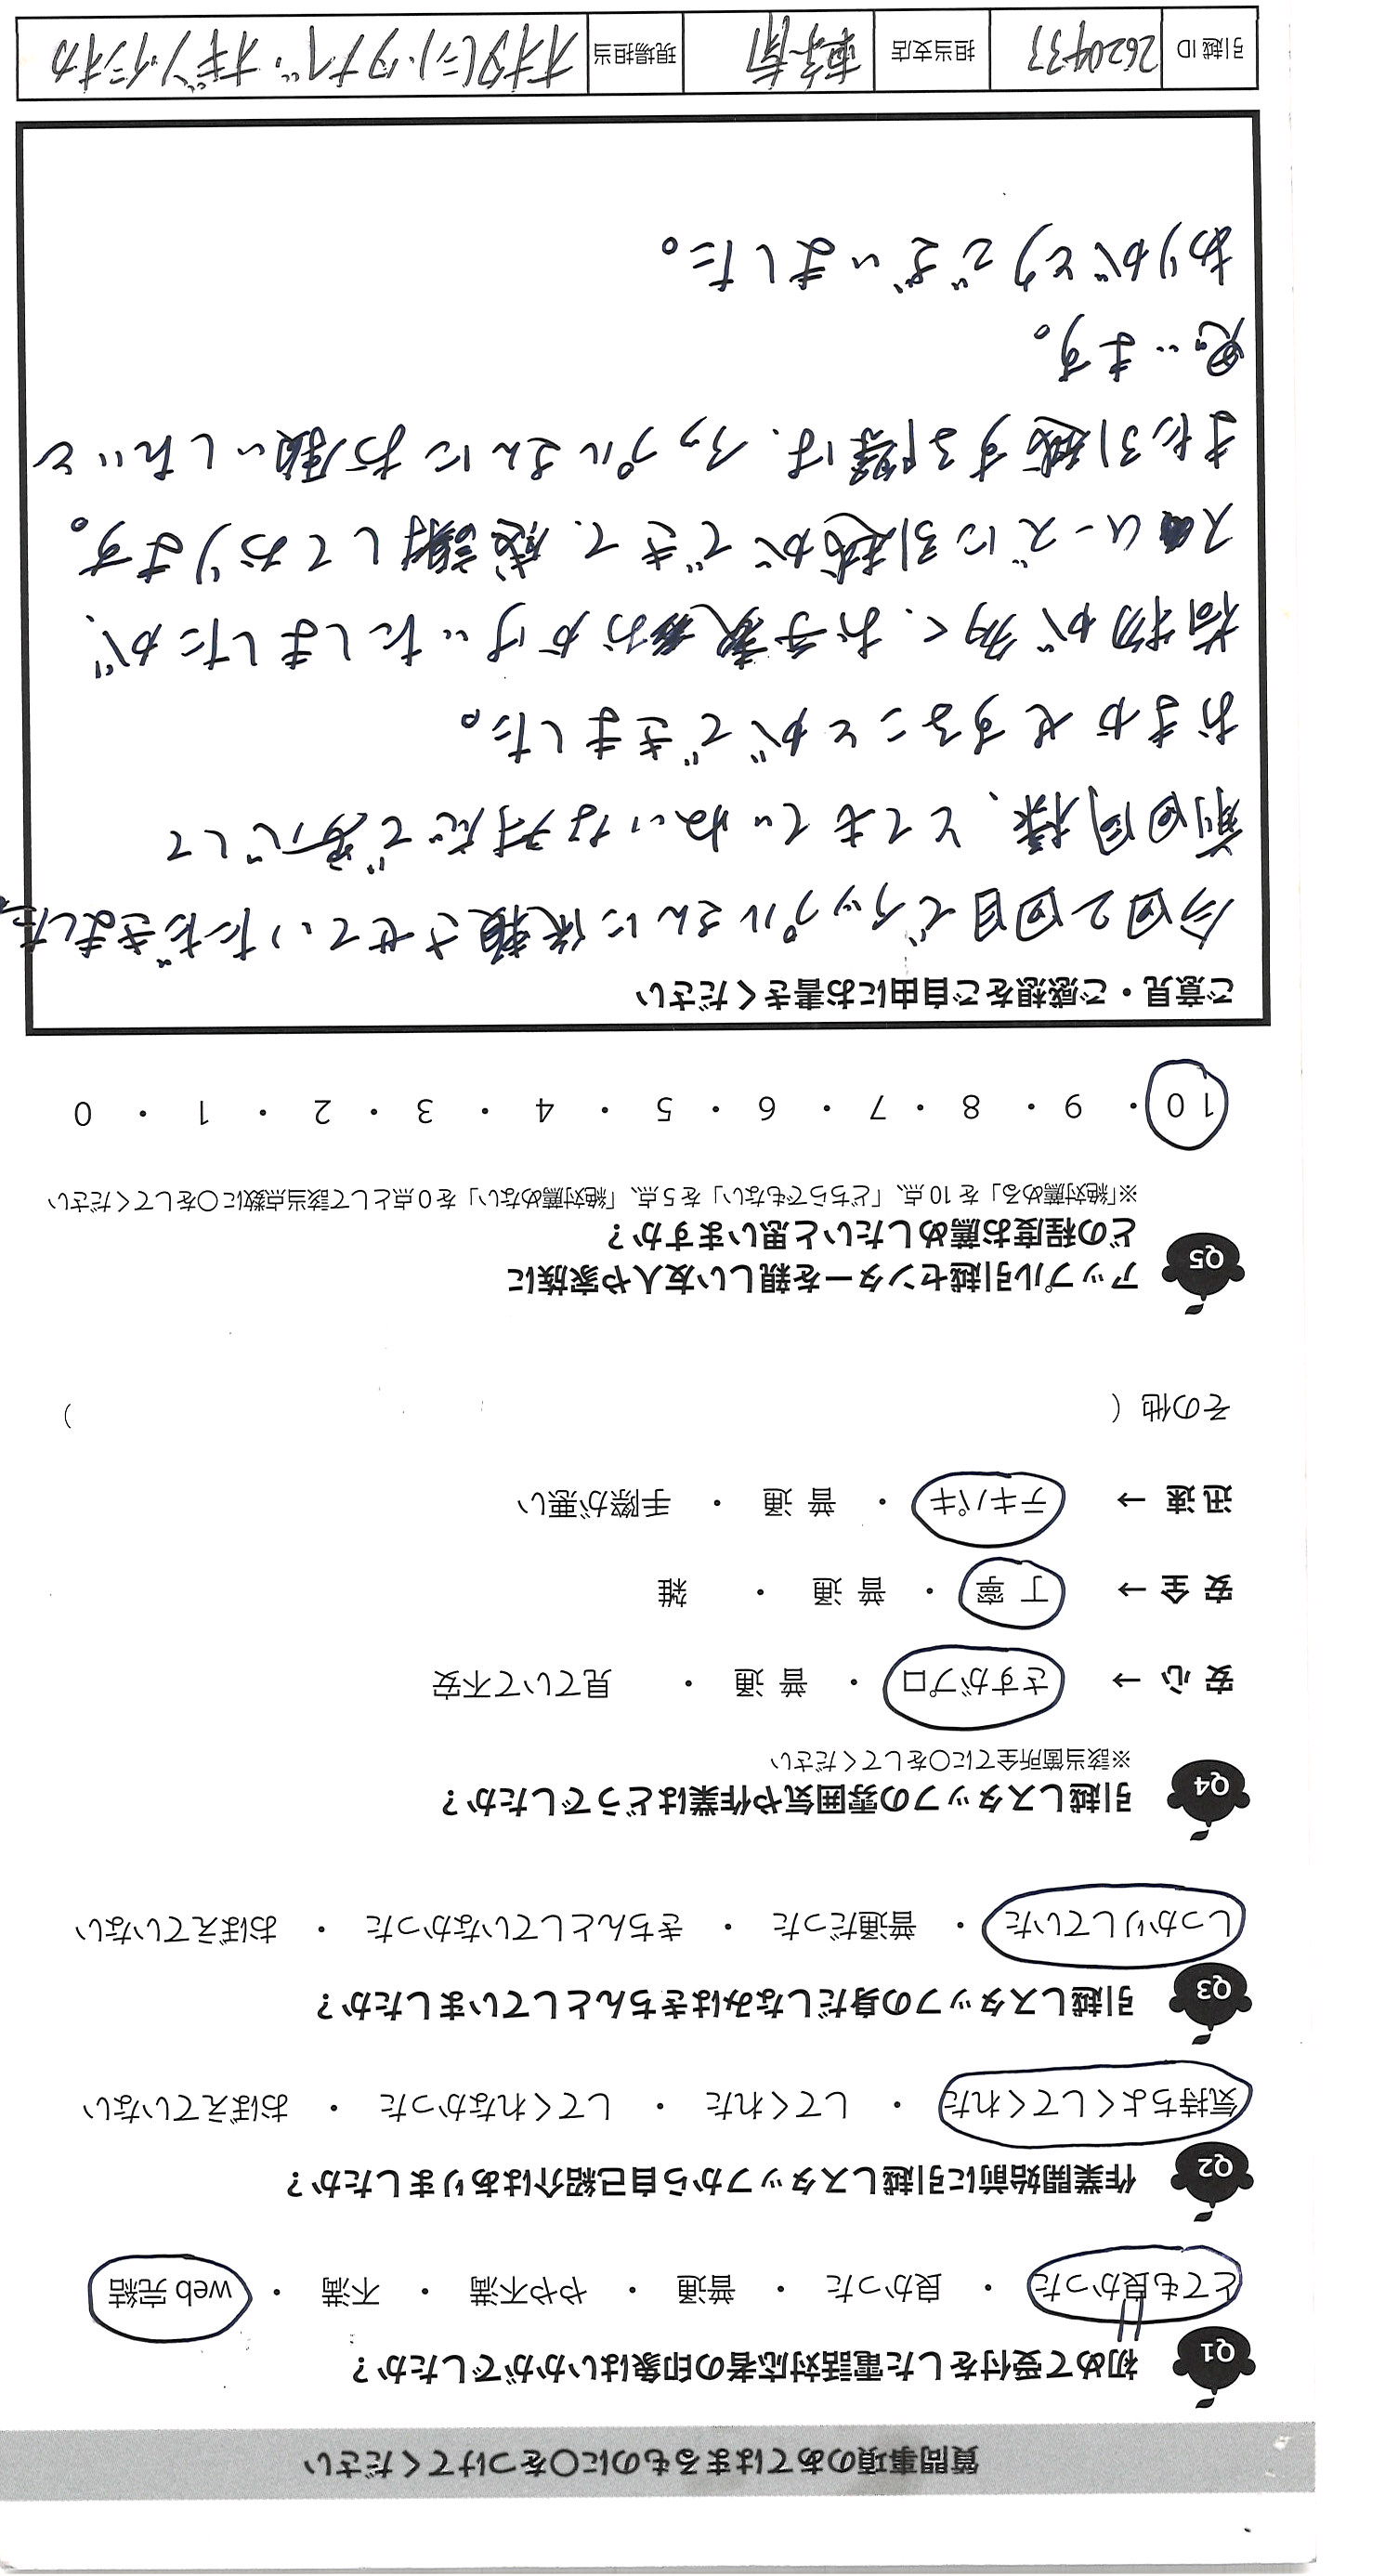 質問事項のあてはまるものに〇をつけてください
Q1 初めて受付をした電話対応者の印象はいかがでしたか？
とても良かった ・ 良かった ・ 普通 ・ やや不満 ・ 不満 ・ web 完結
Q2 作業開始前に引越しスタッフから自己紹介はありましたか？
気持ちよくしてくれた ・ してくれた ・ してくれなかった ・ おぼえていない
Q3 引越しスタッフの身だしなみはきちんとしていましたか？
しっかりしていた ・ 普通だった ・ きちんとしていなかった ・ おぼえていない
Q4 引越しスタッフの雰囲気や作業はどうでしたか？
※該当箇所全てに〇をしてください
安 心 → さすがプロ ・ 普 通 ・ 見ていて不安
安 全 → 丁 寧 ・ 普 通 ・ 雑
迅 速 → テキパキ ・ 普 通 ・ 手際が悪い
その他（ ）
Q5 アップル引越センターを親しい友人や家族に
どの程度お薦めしたいと思いますか？
※「絶対薦める」を 10 点、「どちらでもない」を 5 点、「絶対薦めない」を 0 点として該当点数に〇をしてください
10 ・ 9 ・ 8 ・ 7 ・ 6 ・ 5 ・ 4 ・ 3 ・ 2 ・ 1 ・ 0
ご意見・ご感想をご自由にお書きください
今回2回目でアップルさんに依頼させていただきました。
前回同様、とてもていねいな対応で安心して
おまかせすることができました。
荷物が多く、お手数おかけいたしましたが、
スムーズに引越ができて、感謝しております。
また引越する際は、アップルさんにお願いしたいと
思います。
ありがとうございました。
引越 ID 2620433 担当支店 現場担当